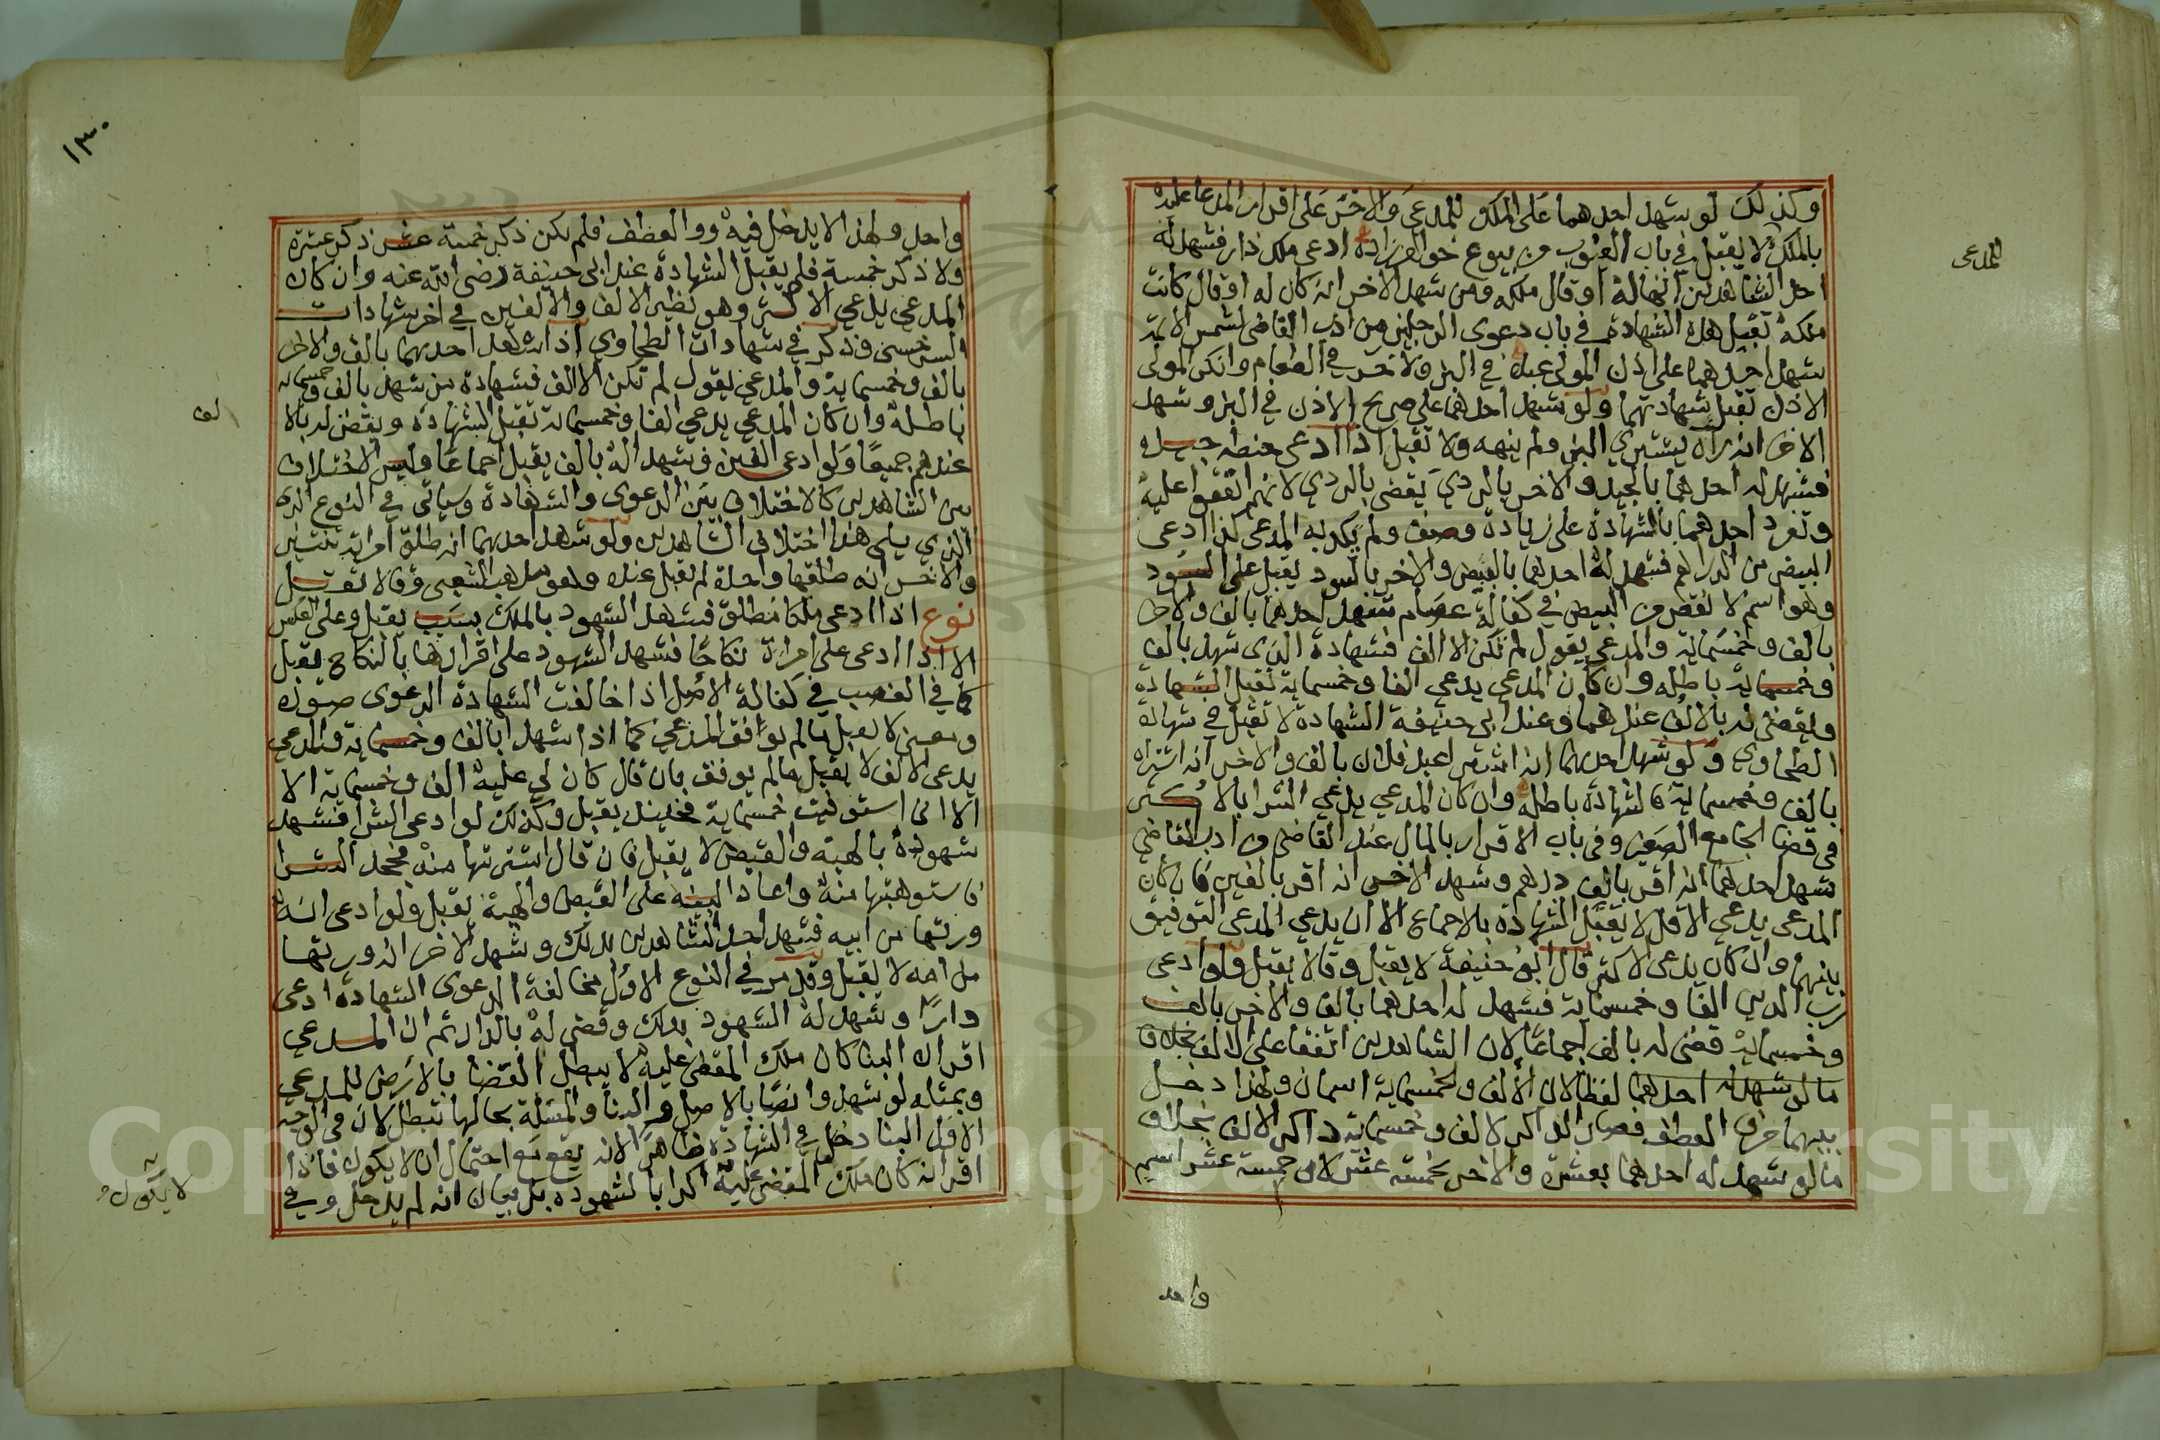 وكذلك لو شهد احدهما على الملك للمدعي والاخر على اقرار المدعا عليه
بالملك لا يقبل في باب العيوب من بيوع خواهر زاده ادعى ملك دار فشهد له
احد الشاهدين انها له او قال ملكه ومن شهد الاخر انه كان له او قال كانت
ملكه تقبل هذه الشهادة في باب دعوى الرجلين من ادب القاضي لشمس الايمة
شهد احدهما على اذن المولى عبده في البز والاخر في الطعام وانكر المولى
الاذن تقبل شهادتهما ولو شهد احدهما على صريح الاذن في البز وشهد
الاخر انه رآه يشتري البز ولم ينهه ولا تقبل اذا ادعى حنطه جيده
فشهد له احدهما بالجيد والاخر بالردي يقضى بالردي لانهم اتفقوا عليه
وتفرد احدهما بالشهادة على زيادة وصف ولم يكذبه المدعى كذا ادعى
البيض من الدراهم فشهد له احدهما بالبيض والاخر بالسود يقبل على السود
وهو اسم لا نقض من البيض في كفالة عصام شهد احدهما بالف والاخر
بالف وخمسمائة والمدعي يقول لم تكن الا الف فشهادة الذي شهد بالف
وخمسمائة باطله وان كان المدعي يدعي الفا وخمسماية تقبل الشهادة
ويقضى له بالالف عندهما وعند ابي حنيفة الشهادة لا تقبل في شهادة
الطحاوي ولو شهد احدهما انه اشترى عبد فلان بالف والاخر انه اشتراه
بالف وخمسماية فالشهادة باطله وان كان المدعي يدعي الشرا بالاكثر
في قضا الجامع الصغير وفي باب الاقرار بالمال عند القاضي من ادب القاضي
شهد احدهما انه اقر بالف درهم وشهد الاخر انه اقر بالفين فان كان
المدعى يدعي الاقل لا يقبل الشهادة بالاجماع الا ان يدعي المدعى التوفيق
بينهما وان كان يدعى الاكثر قال ابو حنيفة لا يقبل وقالا يقبل ولو ادعى
رب الدين الفا وخمسماية فشهد له احدهما بالف والاخر بالف
وخمسماية قضى له بالف اجماعا لان الشاهدين اتفقا على الالف بخلاف
ما لو شهد له احدهما لفظا لان الألف والخمسماية اسمان ولهذا دخل
بينهما حرف العطف فصار الذاكر لالف وخمسماية ذاكر الالف بخلاف
ما لو شهد له احدهما بعشرة والاخر بخمسة عشر لان خمسة عشر اسم
المدعى
واحد
١٣٠
واحد ولهذا لا يدخل فيه واو العطف فلم يكن ذكر خمسة عشر ذكر عشرة
ولا ذكر خمسة فلم يقبل الشهادة عند ابي حنيفة رضي الله عنه وان كان
المدعي يدعي الاكثر وهو نظير الالف والالفين في اخر شهادات
السرخسي وذكر في شهادات الطحاوي اذا شهد احدهما بالف والاخر
بالف وخمسماية والمدعي يقول لم تكن الا الف فشهادة من شهد بالف وخمسماية
باطلة وان كان المدعي يدعي الفا وخمسماية تقبل الشهادة ويقضى له بالا
عندهم جميعا ولو ادعى الفين وشهدا له بالف يقبل اجماعا وليس الاختلاف
بين الشاهدين كالاختلاف بين الدعوى والشهادة وسياتي في النوع الذي
الذي يلي هذا اختلاف الشاهدين ولو شهد احدهما انه طلق امراته ثنتين
والاخر انه طلقها واحدة لم يقبل عنده وهو مذهب الشعبي وقالا تقبل
نوع اذا ادعى ملكا مطلق فشهد الشهود بالملك بسبب يقبل وعلى العكس
لا اذا ادعى على امراة نكاحا فشهد الشهود على اقرارها بالنكاح يقبل
كما في الغصب في كفالة الاصل اذا خالفت الشهادة الدعوى صورة
ومعنى لا يقبل ما لم يوافق المدعي كما اذا شهدا بالف وخمسماية والمدعي
يدعى الالف لا يقبل ما لم يوفق بان قال كان لي عليه الف وخمسماية الا
الا اني استوفيت خمسماية فحينئذ يقبل وكذلك لو ادعى الشرا فشهد
شهوده بالهبة والقبض لا يقبل فان قال اشتريتها منه فجحد الشرا
فاستوهبتها منه واعاد البينة على القبض والهبة يقبل ولو ادعى انه
ورثها من ابيه فشهد احد الشاهدين بذلك وشهد الاخر انه ورثها
من امه لا يقبل وقد مر في النوع الاول مخالفة الدعوى الشهادة ادعى
دارا وشهد له الشهود بذلك وقضى له بالدار ثم ان المدعي
اقر ان البنا كان ملك المقضى عليه لا يبطل القضا بالارض للمدعي
وبمثله لو شهدوا نصا بالاصل والبنا والمسئلة بحالها تبطل لان في الوجه
الاول البنا دخل في الشهادة ظاهرا لانه يقع مع احتمال ان لا يكون فاذا
اقر انه كان ملك المقضى عليه اكذابا لشهوده بل بيان انه لم يدخل وفي
لف
لا يكون